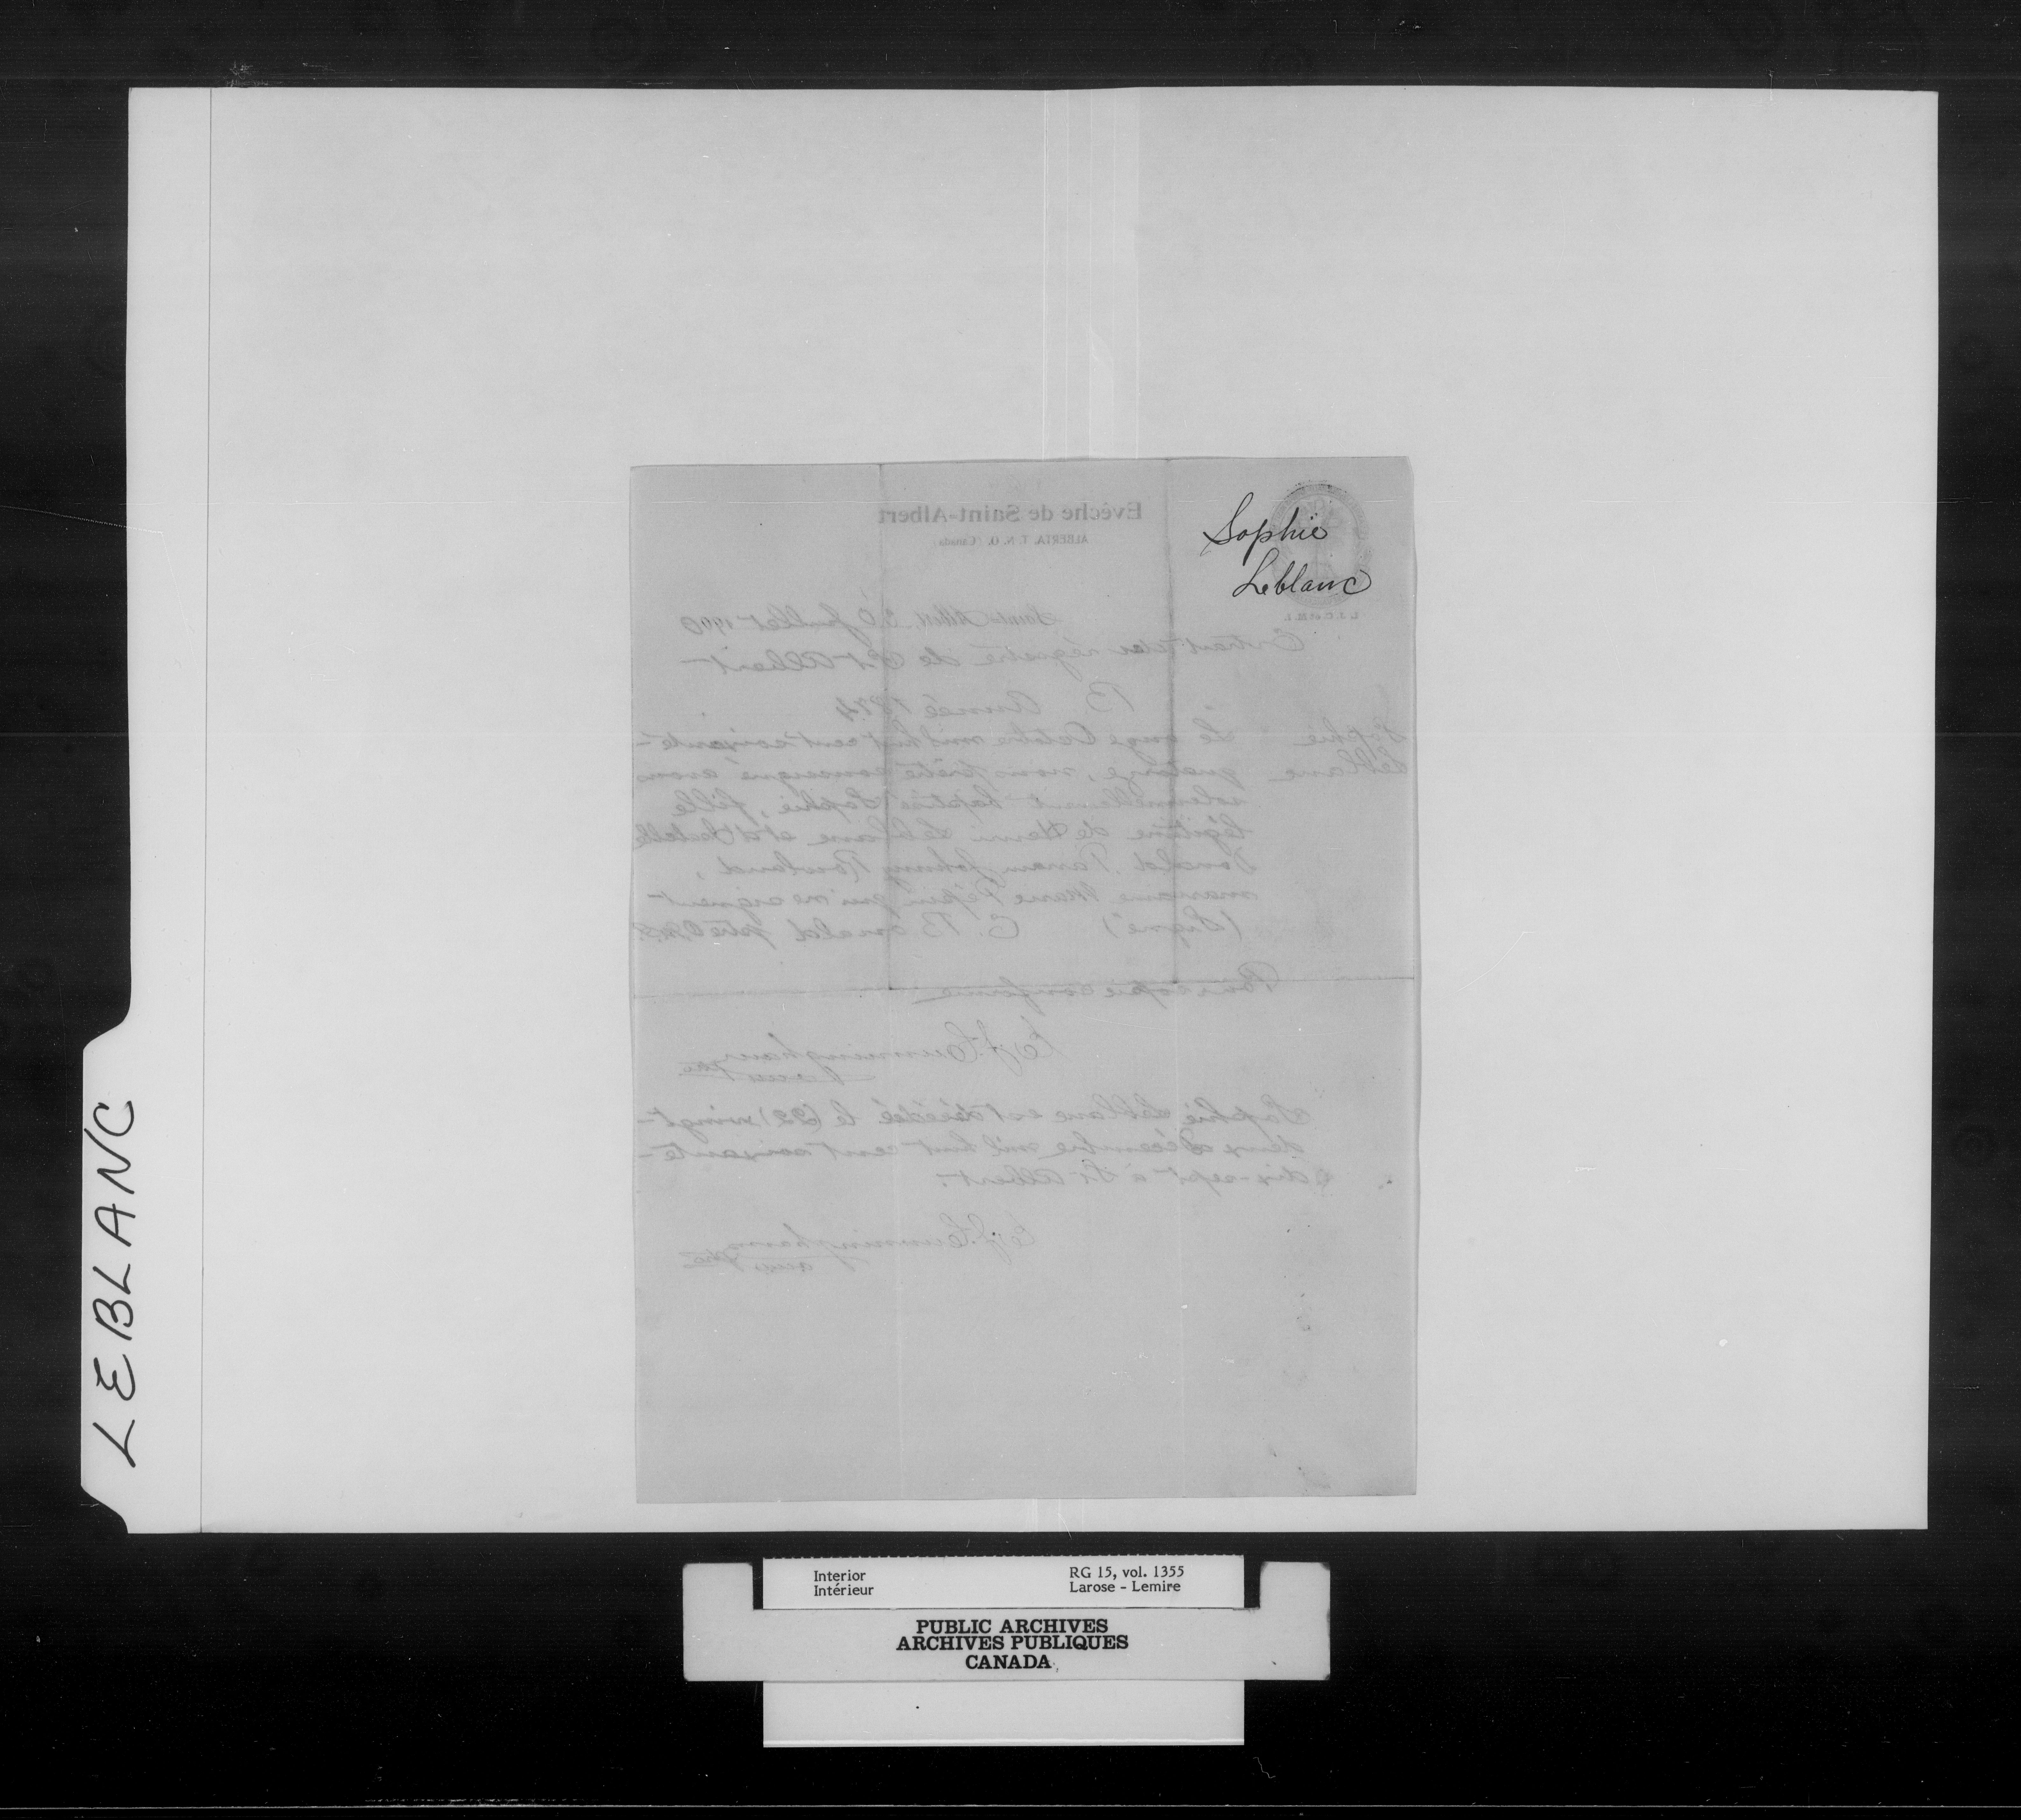 LEBLANC
Sophie
Leblanc
Evêché de Saint-Albert
ALBERTA, T. N. O. (Canada)
Saint-Albert, 30 Juillet 1900
Extrait des régistre de St Albert
B. Année 1874
Sophie
Leblanc
Le onze Octobre mil huit cent soixante-
quatorze, nous prêtre soussigné avons
solennellement baptisé Sophie, fille
légitime de Henri Leblanc et d'
Donald. Parrain Johnny Rowland,
marraine Marie Pépin qui ne signent
(Signé)
Pour copie conforme
Cunningham
Sophie Leblanc est décédé le (22) vingt-
deux décembre mil huit cent soixante-
dix-sept à St Albert.
Cunningham
Interior
Intérieur
RG 15, vol. 1355
Larose - Lemire
PUBLIC ARCHIVES
ARCHIVES PUBLIQUES
CANADA